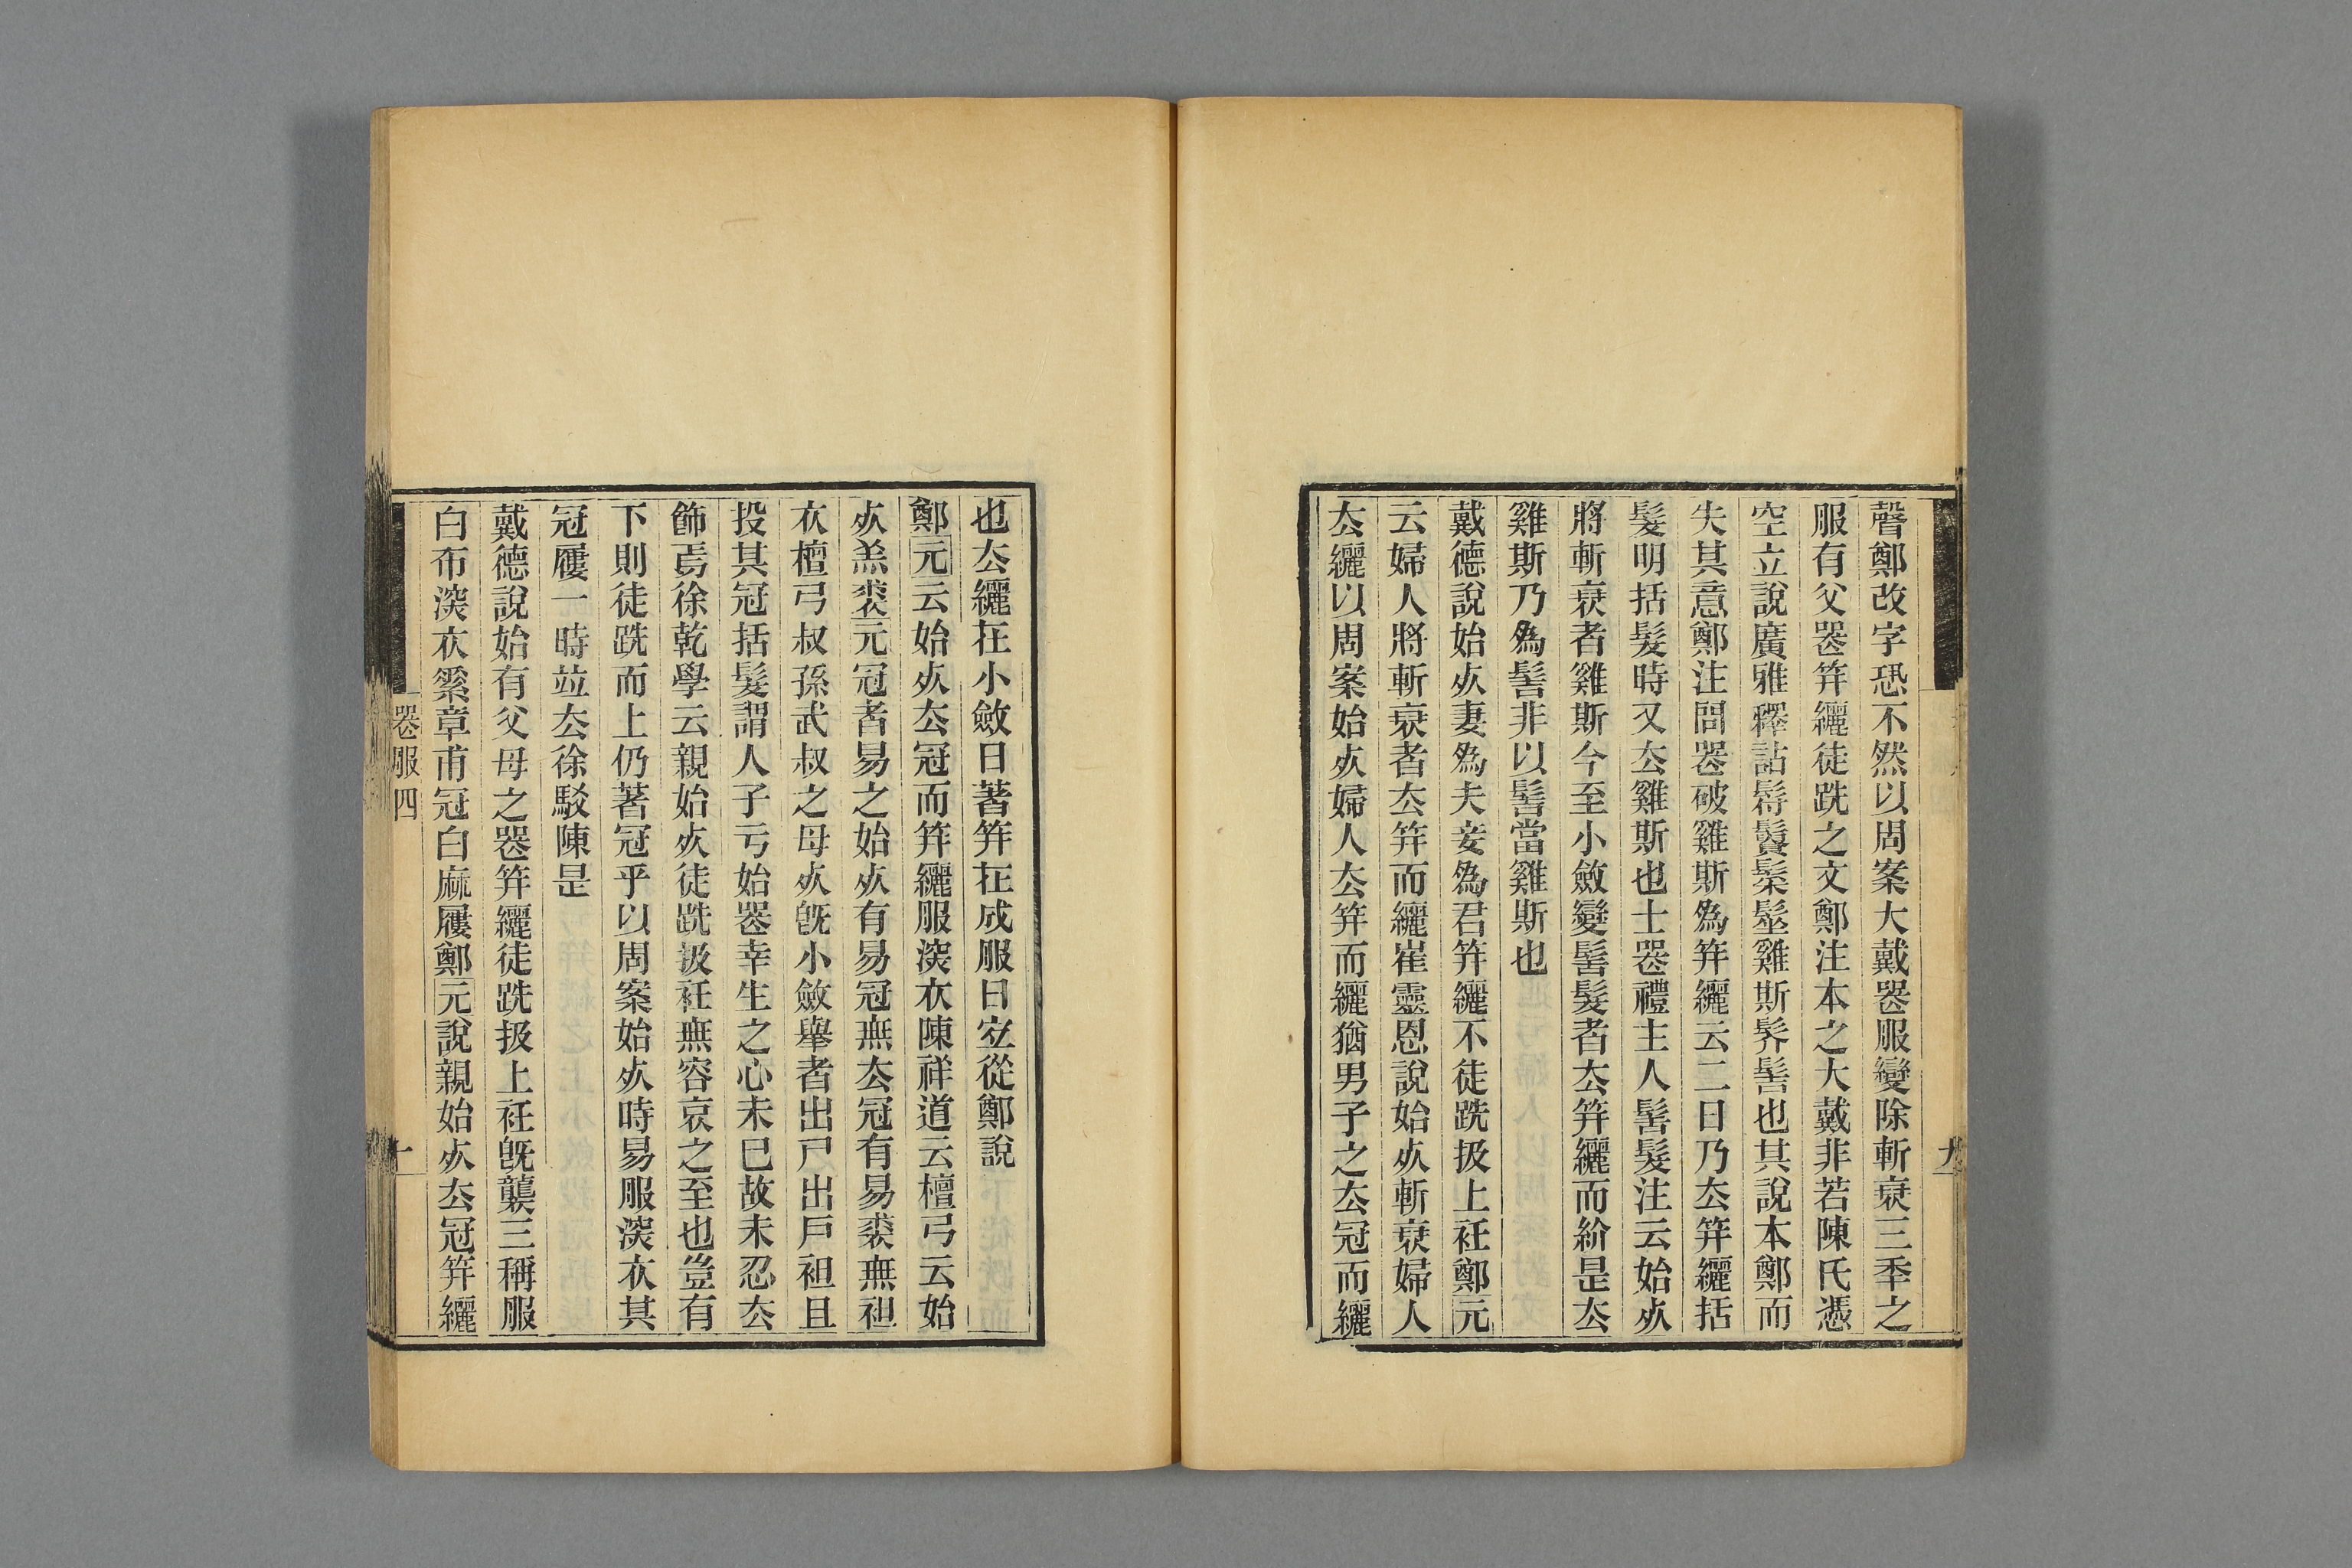 聲鄭改字恐不然以周案大戴器服變除斬衰三秊之
服有父器筓纚徒跣之文鄭注本之大戴非若陳氏憑
空立說廣雅釋詁髵鬟髤髽雞斯髣髻也其說本鄭而
失其意鄭注問器破雞斯爲筓纚云二日乃厺筓纚括
髮明括髮時又厺雞斯也士器禮主人髻髮注云始𣦸
將斬衰者雞斯今至小斂變髻髮者厺筓纚而紒是厺
雞斯乃爲髻非以髻當雞斯也
戴德說始𣦸妻爲夫妾爲君筓纚不徒跣扱上衽鄭元
云婦人將斬衰者厺筓而纚崔靈恩說始𣦸斬衰婦人
厺纚以周案始𣦸婦人厺筓而纚猶男子之厺冠而纚
九
也厺纚在小斂日著筓在成服日宐從鄭說
鄭元云始𣦸厺冠而筓纚服深衣陳祥道云檀弓云始
𣦸羔裘元冠者易之始𣦸有易冠無厺冠有易裘無袒
衣檀弓叔孫武叔之母𣦸旣小斂舉者出尸出戶袒且
投其冠括髮謂人子亏始器幸生之心未已故未忍厺
飾焉徐乾學云親始𣦸徒跣扱衽無容哀之至也豈有
下則徒跣而上仍著冠乎以周案始𣦸時易服深衣其
冠屨一時竝厺徐駮陳是
戴德說始有父母之器筓纚徒跣扱上衽旣襲三稱服
白布深衣繁章甫冠白麻屨鄭元說親始𣦸厺冠筓纚
器服四
十